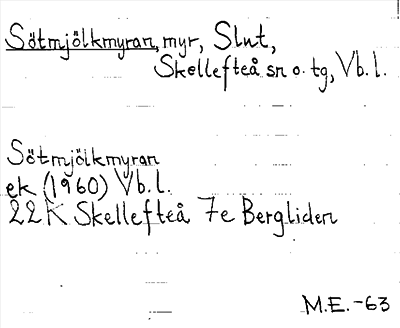 Sötmjölkmyran, myr, Slut,
Skellefteå sn o. tg, Vb. l.
Sötmjölkmyran
ek (1960) Vb. l.
22 K Skellefteå 7e Bergliden
M.E. -63